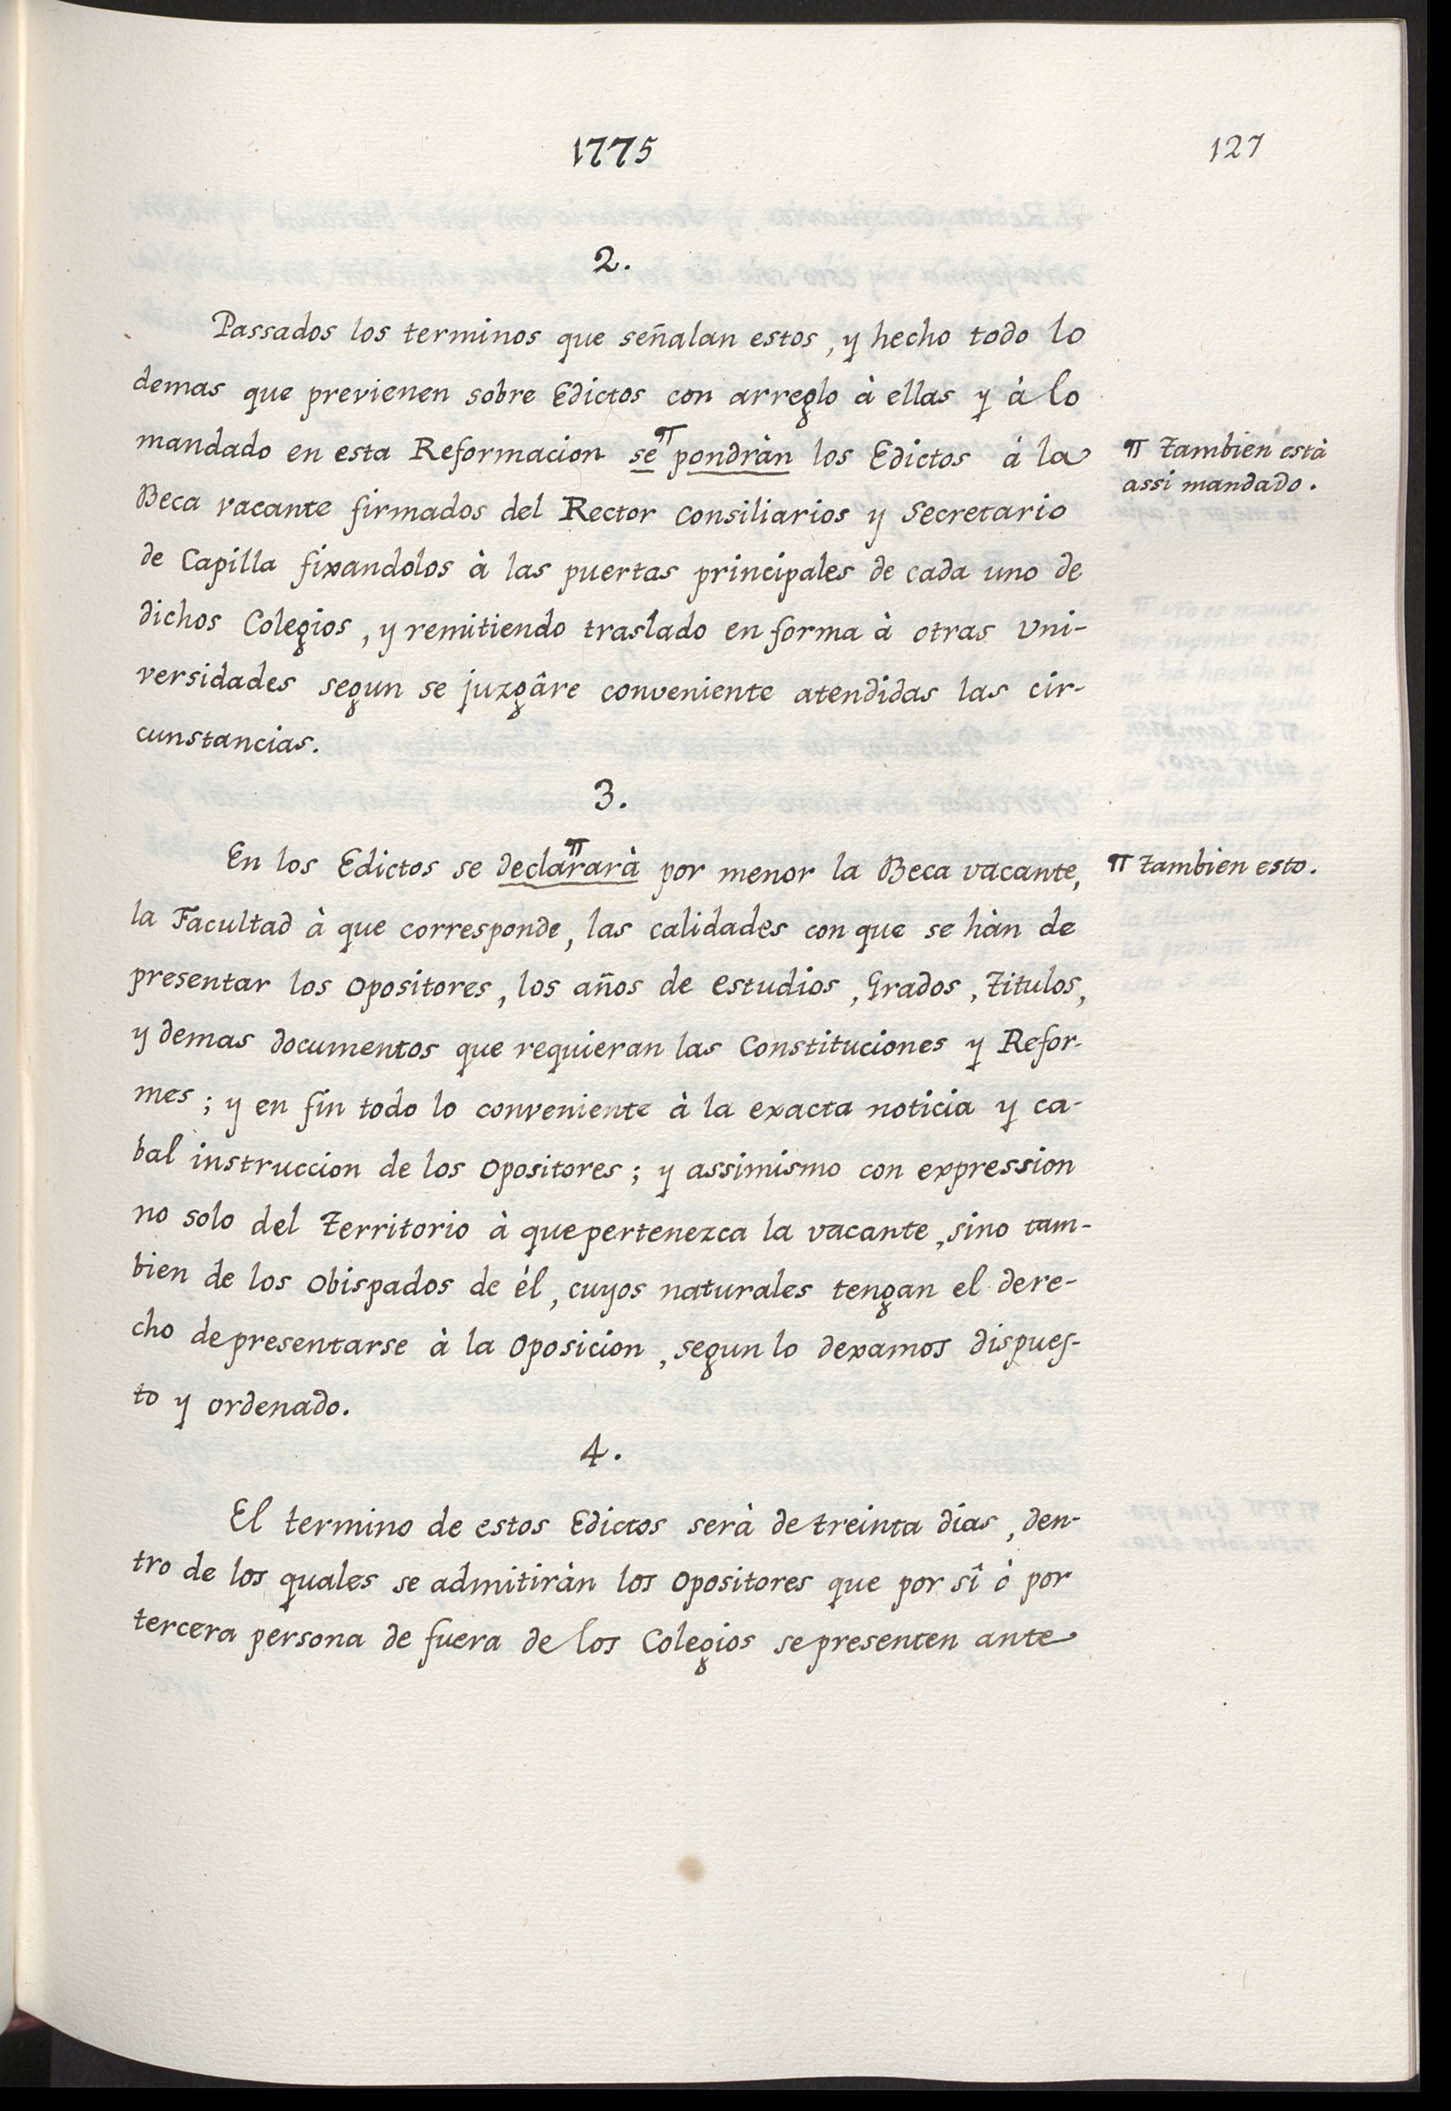 1775
127
2.
Passados los terminos que señalan estos, y hecho todo lo
demas que previenen sobre Edictos con arreglo à ellas y à lo
mandado en esta Reformacion se ¶ pondràn los Edictos á la
¶ tambien està
assi mandado.
Beca vacante firmados del Rector Consiliarios y Secretario
de Capilla fixandolos à las puertas principales de cada uno de
dichos Colegios, y remitiendo traslado en forma à otras Uni-
versidades segun se juzgâre conveniente atendidas las cir-
cunstancias.
3.
En los Edictos se declararà ¶ por menor la Beca vacante,
¶ tambien esto.
la Facultad à que corresponde, las calidades con que se hàn de
presentar los Opositores, los años de estudios, Grados, Titulos,
y demas documentos que requieran las Constituciones y Refor-
mes; y en fin todo lo conveniente à la exacta noticia y ca-
bal instruccion de los Opositores; y assimismo con expression
no solo del Territorio à que pertenezca la vacante, sino tam-
bien de los Obispados de él, cuyos naturales tengan el dere-
cho de presentarse à la Oposicion, segun lo dexamos dispues-
to y ordenado.
4.
El termino de estos Edictos serà de treinta dias, den-
tro de los quales se admitiràn los Opositores que por sî ò por
tercera persona de fuera de los Colegios se presenten ante